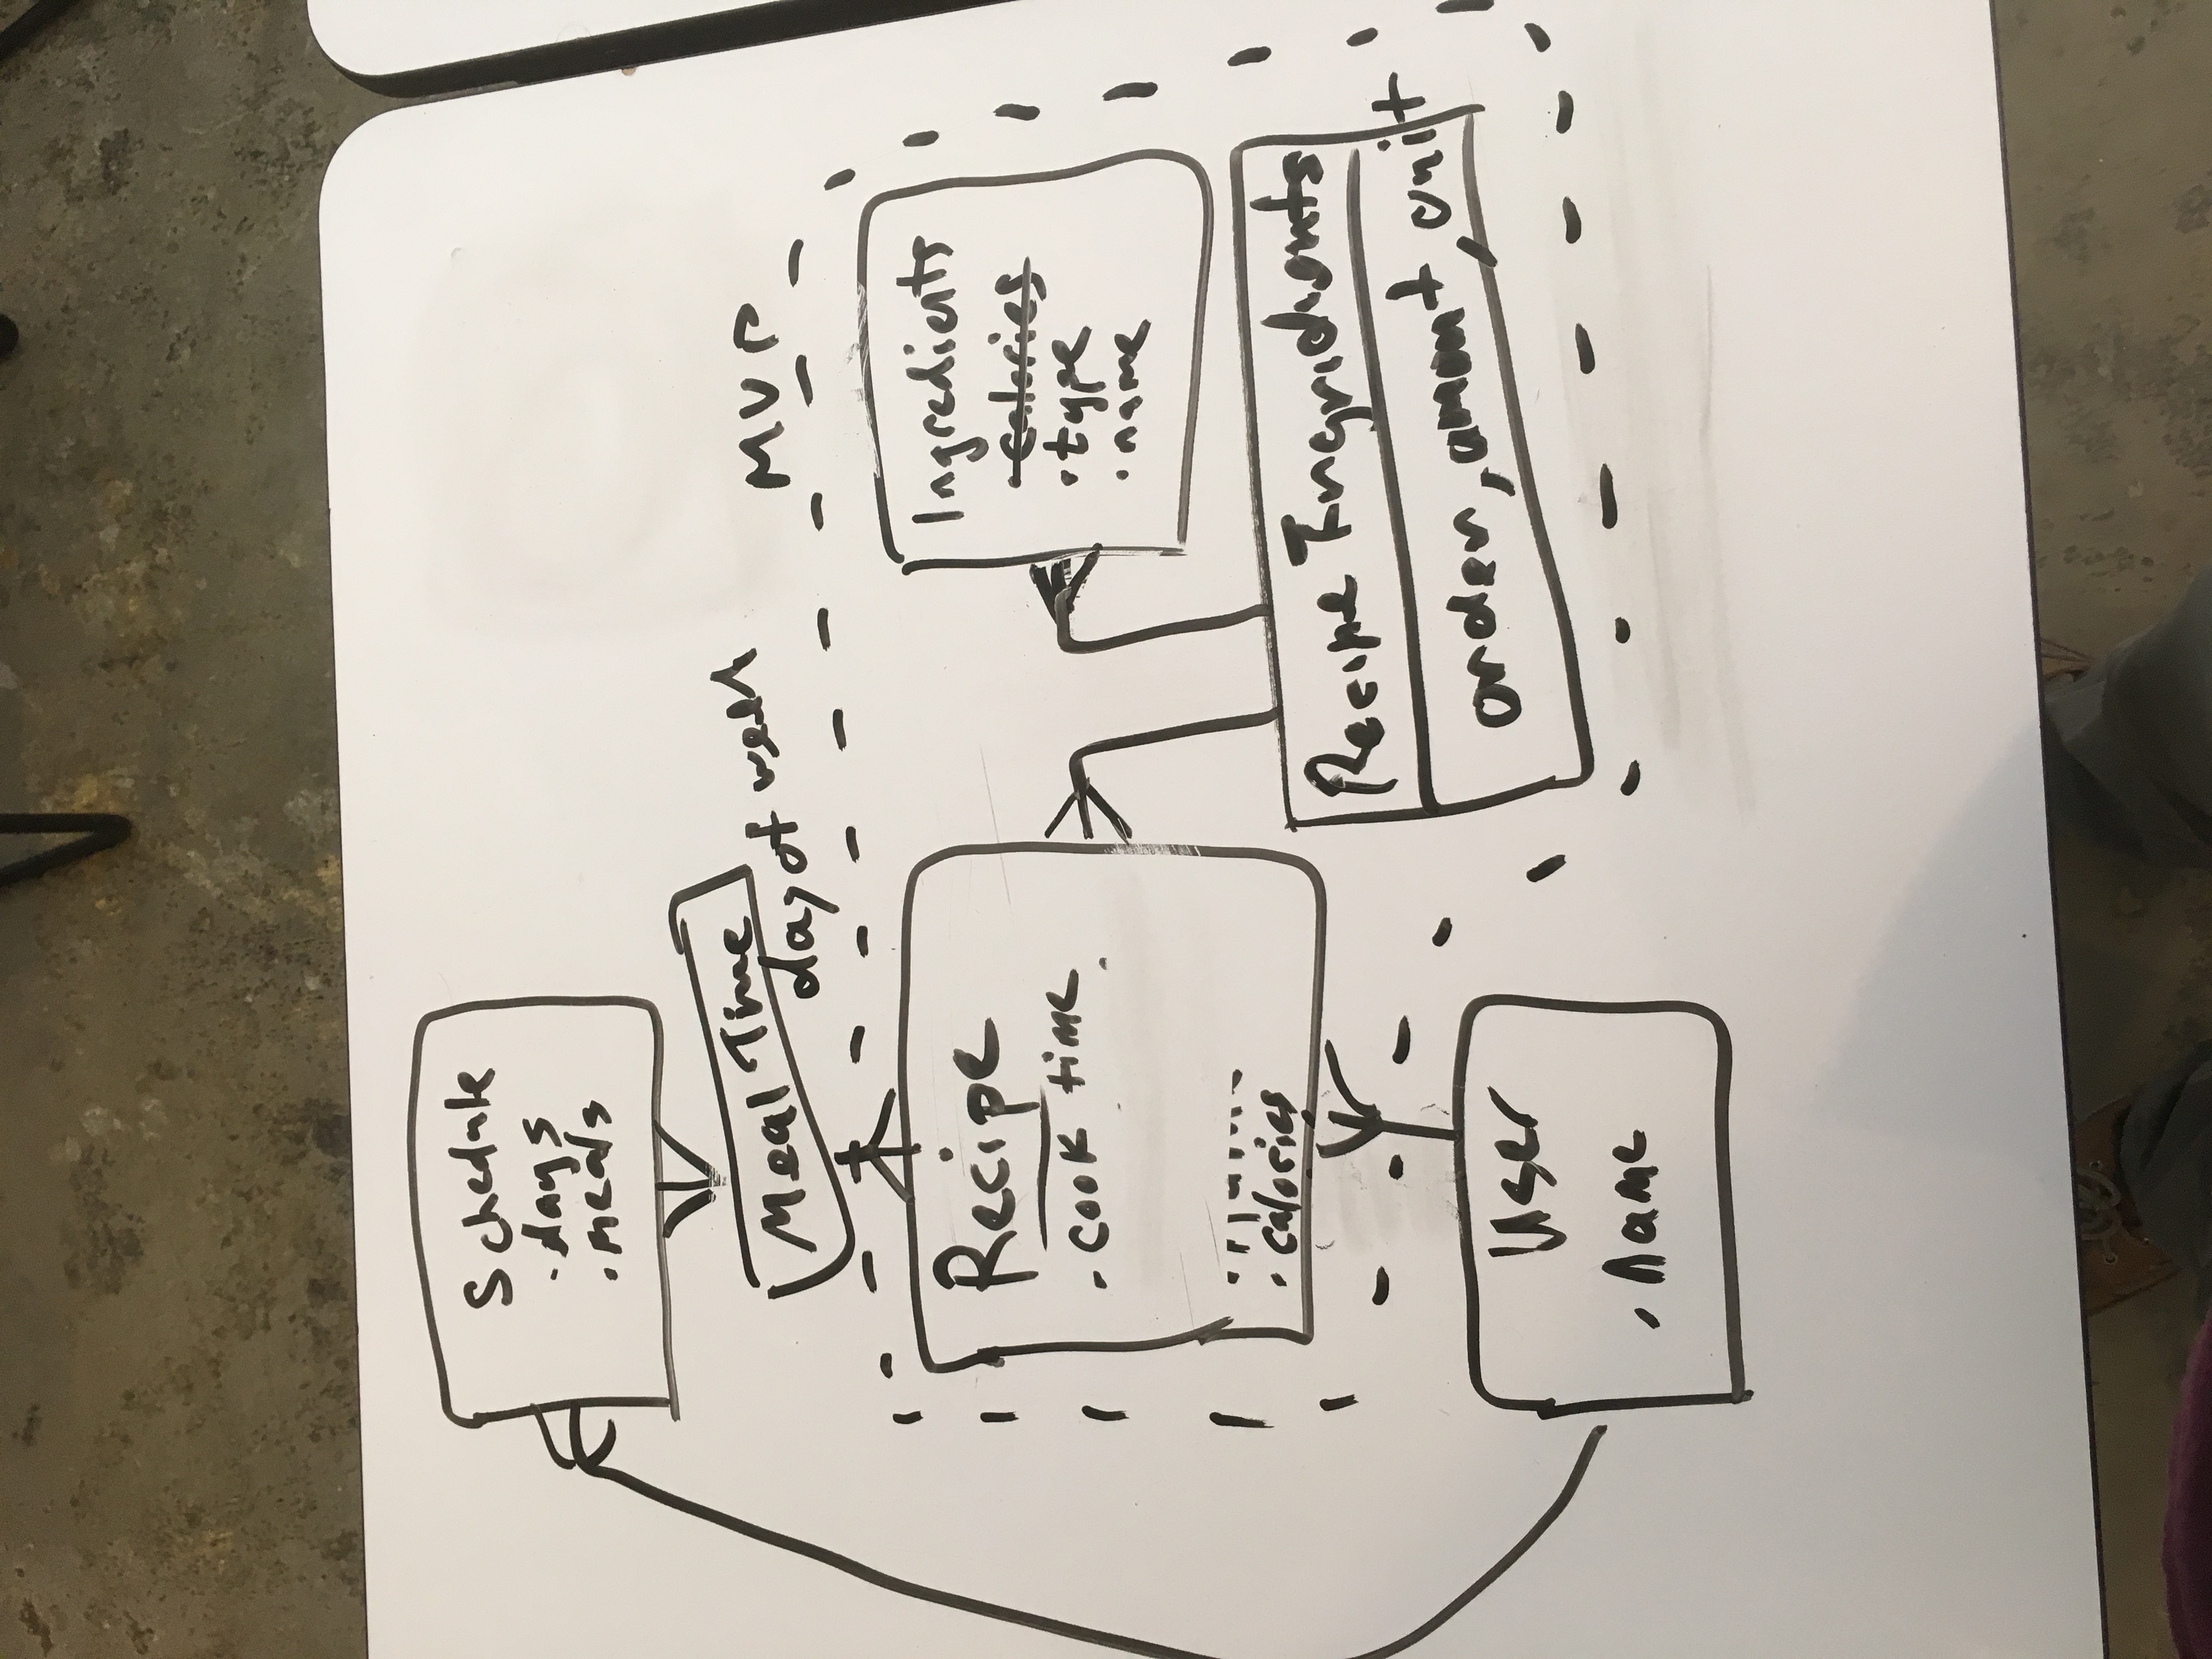 Schedule
· days
· meals
Meal Time
day of week
MVP
Recipe
· cook time
· calories
Ingredients
· calories
· type
· name
Recipe Ingridients
order, amount, unit
User
· name